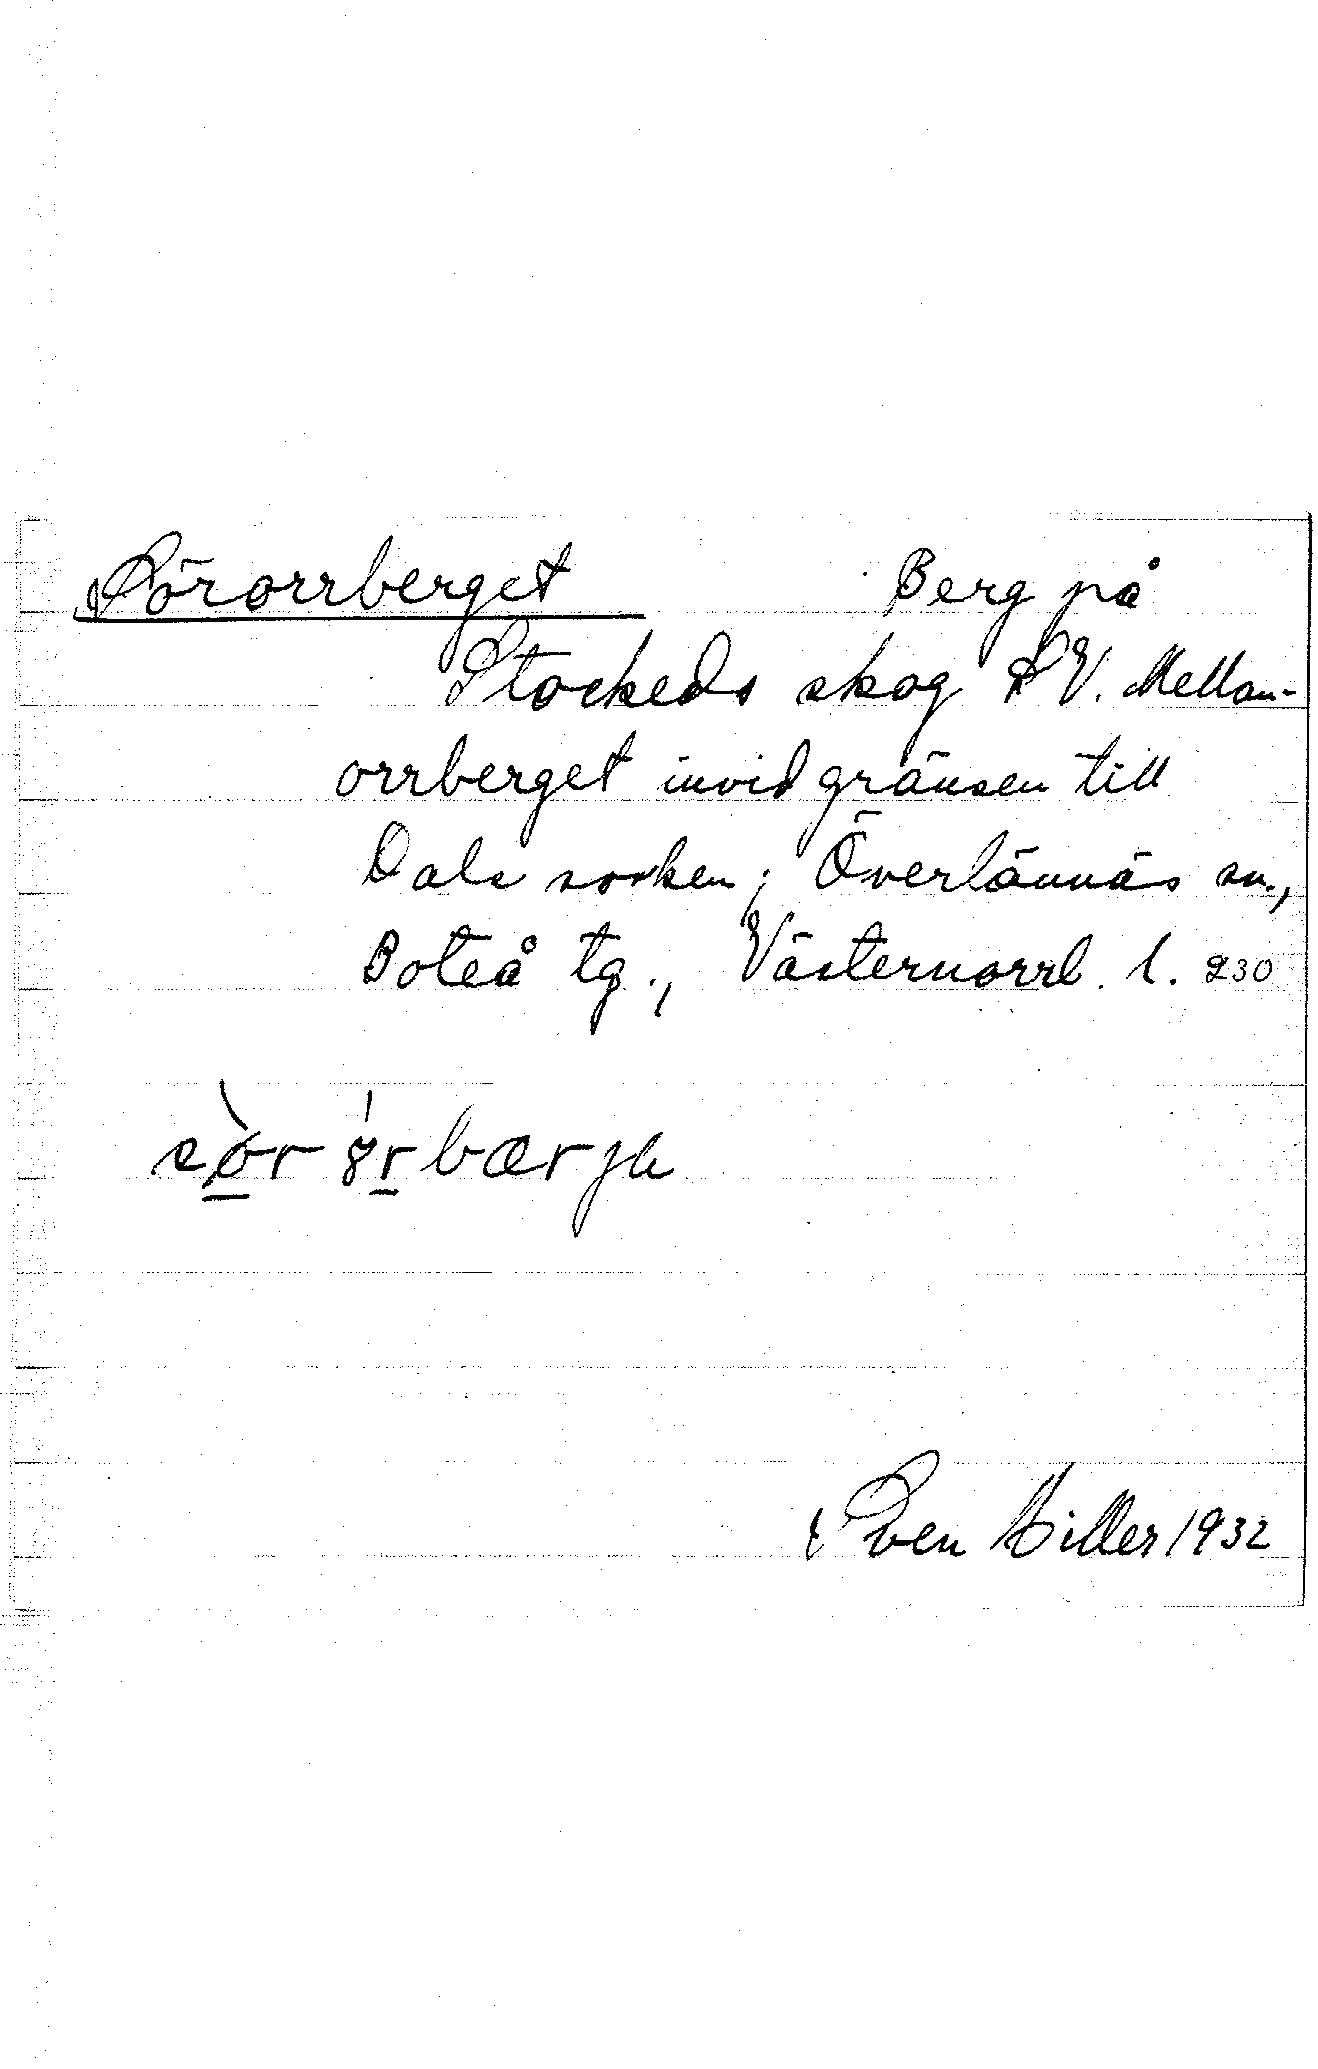 Sörorrberget Berg på
Stockeds skog S V. Mellan-
orrberget invid gränsen till
Dals socken; Överlännäs sn.,
Boteå tg., Västernorrl. l. 230
Sven Hiller 1932